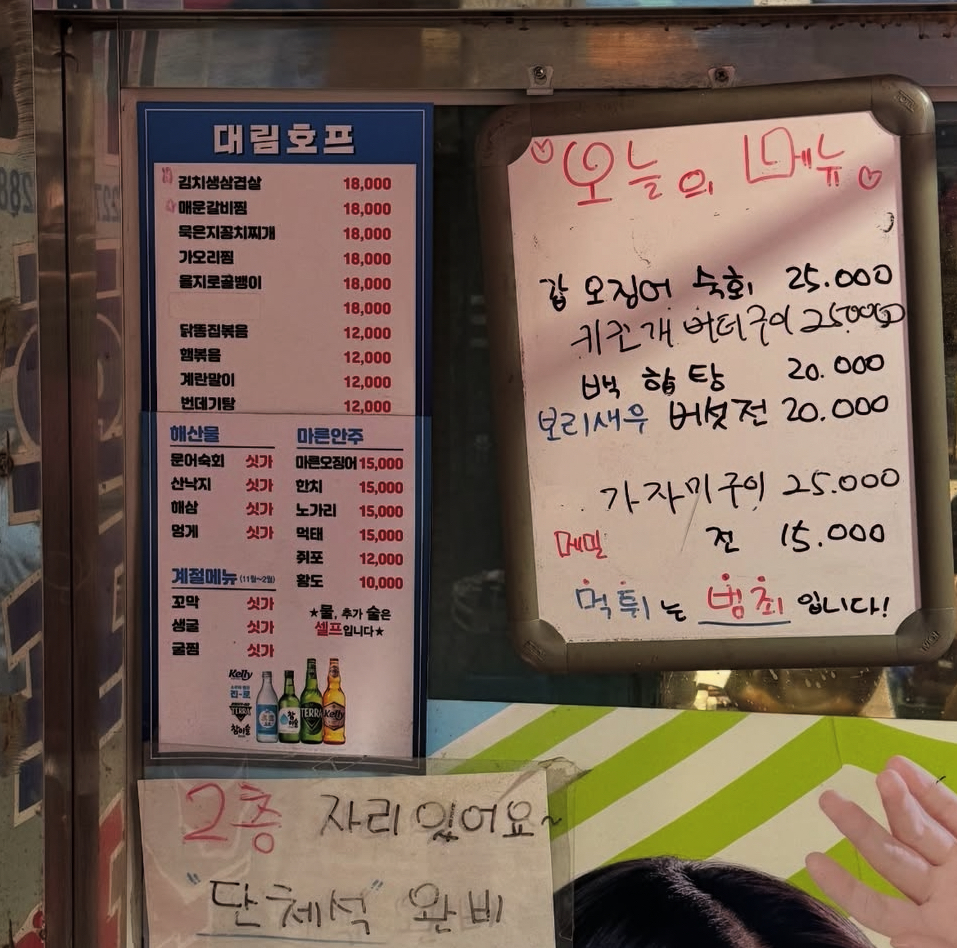 대림호프
김치생삼겹살 18,000
매운갈비찜 18,000
묵은지꽁치찌개 18,000
가오리찜 18,000
을지로골뱅이 18,000
18,000
닭똥집볶음 12,000
햄볶음 12,000
계란말이 12,000
번데기탕 12,000
해산물
문어숙회 싯가
산낙지 싯가
해삼 싯가
멍게 싯가
계절메뉴 (11월~2월)
꼬막 싯가
생굴 싯가
굴찜 싯가
마른안주
마른오징어 15,000
한치 15,000
노가리 15,000
먹태 15,000
쥐포 12,000
황도 10,000
★물, 추가 술은
셀프입니다★
Kelly
TERRA
참이슬
TERRA
Kelly
오늘의 메뉴
갑 오징어 숙회 25.000
키조개 버터구이 25000
백 합 탕 20.000
보리새우 버섯전 20.000
가자미구이 25.000
메밀 전 15.000
먹튀는 범죄 입니다!
2층 자리있어요~
"단체석" 완비